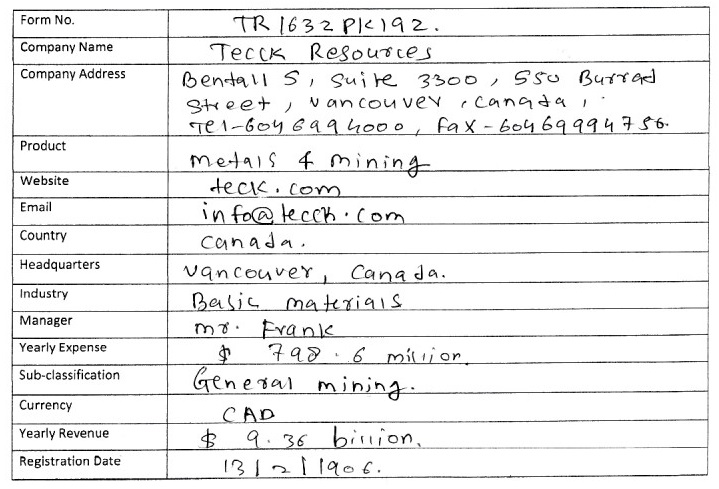 Form No. TR1632PK192.
Company Name Tecck Resources
Company Address Bentall 5, Suite 3300, 550 Burrad
Street, Vancouver, Canada,
Tel-604 699 4000, Fax - 604 699 94756.
Product Metals & mining
Website teck.com
Email info@tecck.com
Country Canada.
Headquarters Vancouver, Canada.
Industry Basic materials
Manager mr. Frank
Yearly Expense $ 798.6 million.
Sub-classification General mining.
Currency CAD
Yearly Revenue $ 9.36 billion.
Registration Date 13/2/1906.